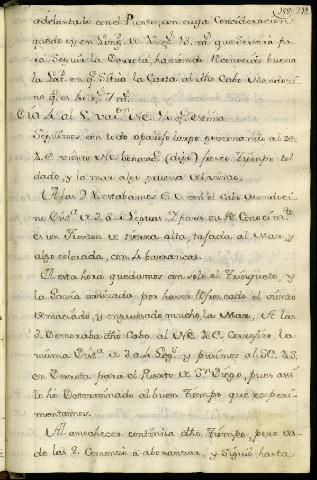 adelantado con el Punto, con cuya Consideracion
quedo oy en Long.d de 13. m.s que servirá pa
ra seguir la Derrota, haviendo Reconocido buena
la Lat. en q.e situa la Carta al dho Cabo Mendozi
no q.e es 40 g.s 7 m.s
Dia 4. al 5
Seguimos con todo aparejo largo governando al
viento fresco, tiempo tol
dado, y la mar algo gruesa del viento.
A las 2 estabamos E.O. con el Cabo Mendoci
no Dist.a de 3. á 4 Leguas, y para su Reconocim.to
es un Fronton de tierra alta, tajada al Mar, y
algo colorada, con 4 barrancas.
A esta hora quedamos con solo el Trinquete, y
la Gavia arrizada por haver Refrescado el viento
demaciado, y engruesado mucho la Mar, A las
3. Demoraba dho Cabo al NE. 4. E. Corregido, la
misma Dist.a de 3 a 4 Leg.s y pusimos al
en Derrota para el Puerto de S.n Diego, pues assi
lo he Determinado al buen Tiempo que experi
mentamos.
Al amanecer continúa dho Tiempo, pero des
de las 8. Comenzó á abonanzar, y siguió hasta